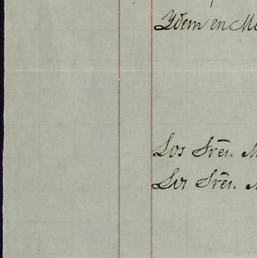 Ydem en M
Los Sres. M
Los Sres. M